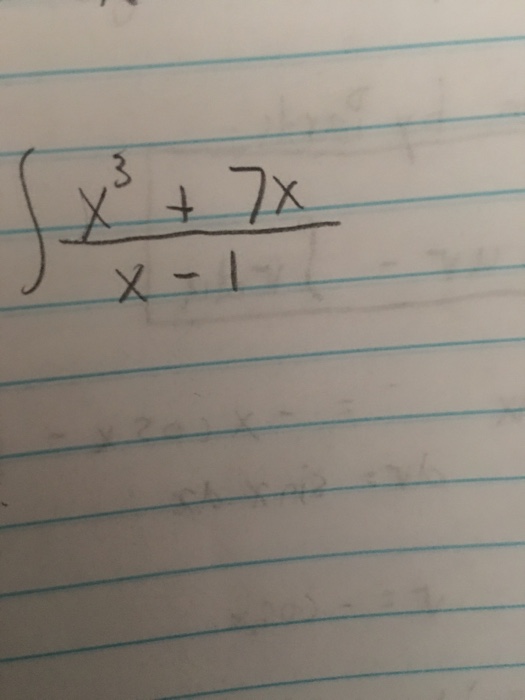 ∫ (x³ + 7x) / (x - 1)